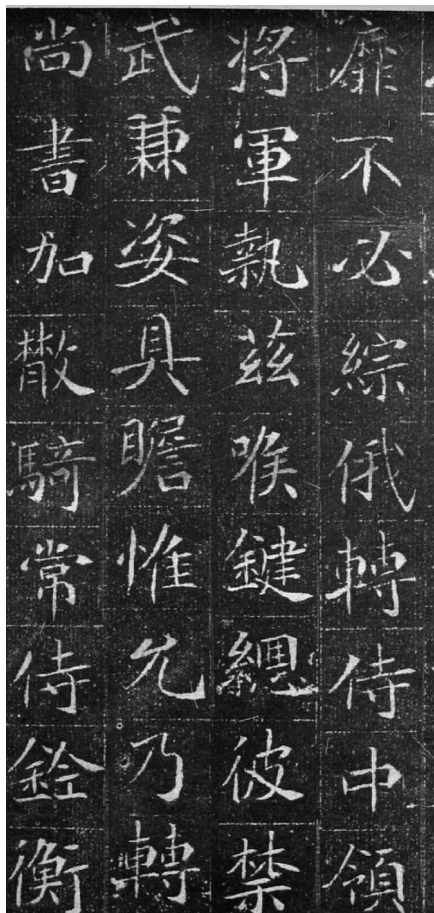 靡不必綜俄轉侍中領
將軍執茲喉鍵總彼禁
武兼姿具瞻惟允乃轉
尚書加散騎常侍銓衡